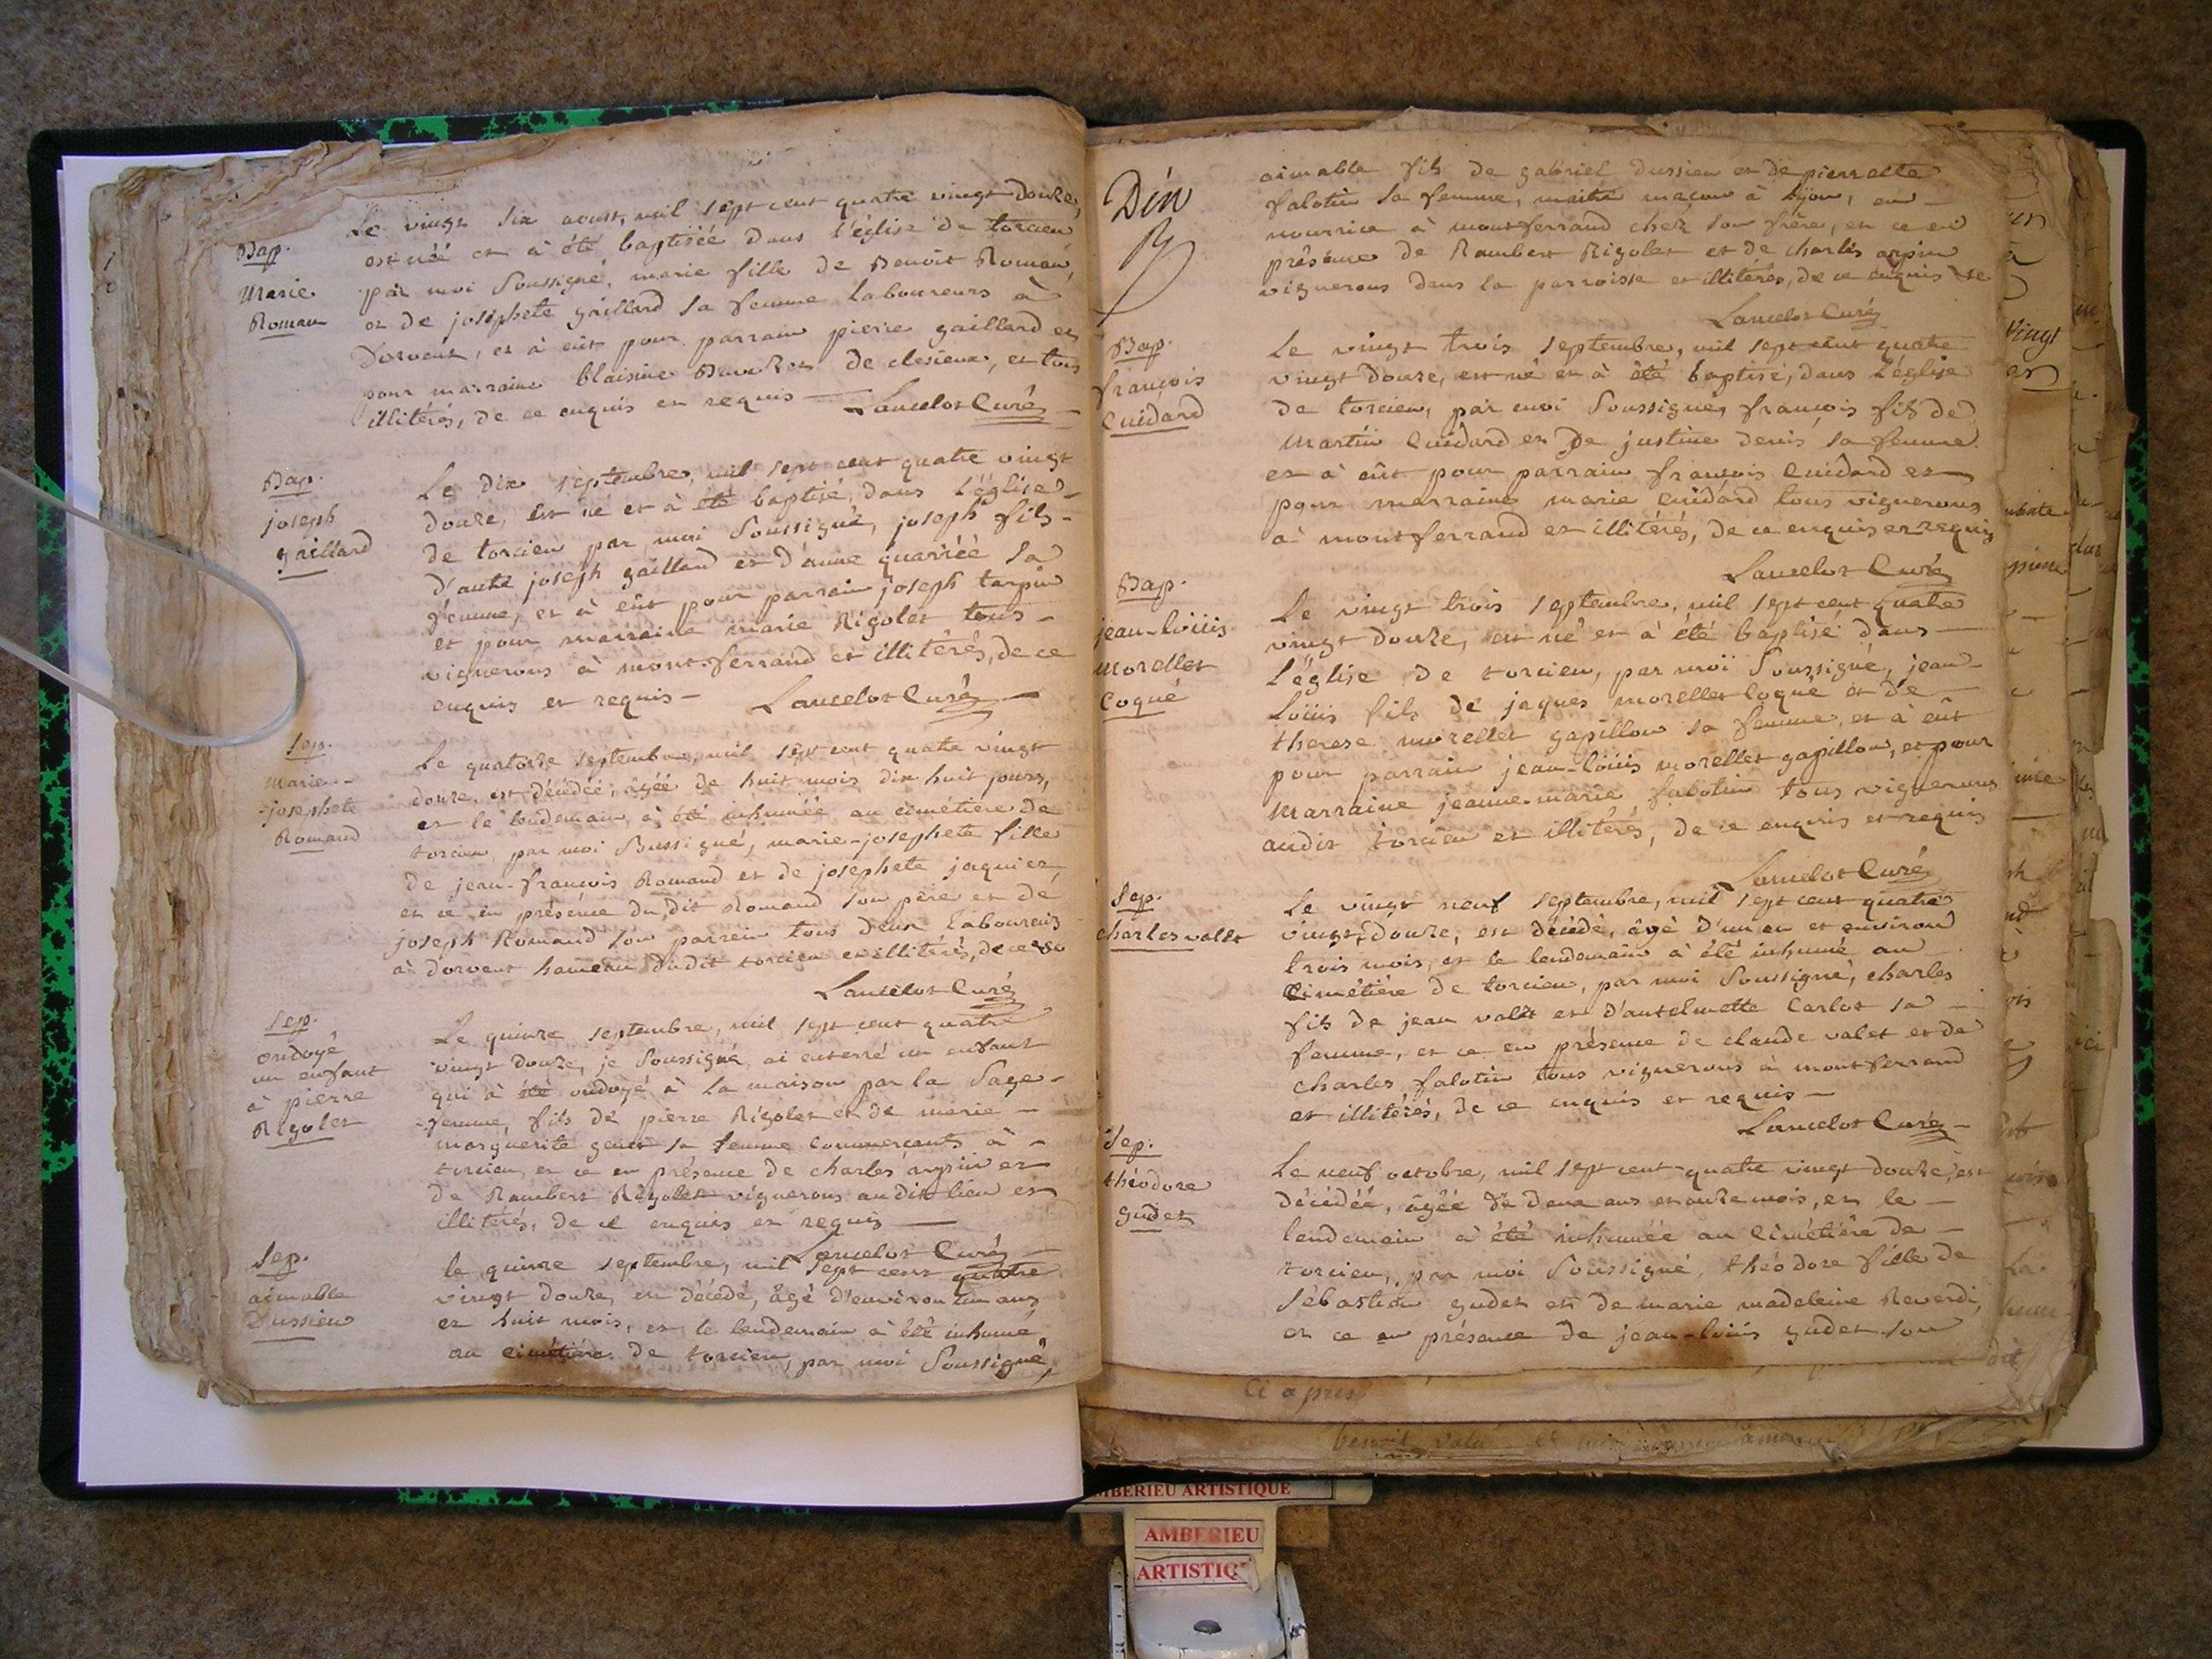 Bap.
Marie
Roman
Le vingt six aoust, mil sept cent quatre vingt douze,
est néé et à été baptiséé dans l'église de torcieu
par moi Soussigné, marie fille de Benoit Roman,
et de josephete gaillard sa femme Laboureurs à
Dorvent, et à eût pour parrain pierre gaillard et
pour marraine blaisine de clesieux, et tous
illitérés, de ce enquis et requis — Lancelot Curé
Bap.
joseph
gaillard
Le dix septembre, mil sept cent quatre vingt
douze, est né et à été baptisé, dans L'église
de torcieu par moi Soussigné, joseph fils
d'autre joseph gaillard et d'anne quarréé sa
femme, et à eût pour parrain joseph tarpin
et pour marraine marie Rigolet tous
vignerons à mont-ferrand et illitérés, de ce
enquis et requis — Lancelot Curé
Sep.
Marie-
-josephete
Romand
Le quatorze septembre, mil sept cent quatre vingt
douze, est décédéé, âgéé de huit mois dix huit jours,
et le lendemain à été inhuméé au cimétière de
torcieu par moi Soussigné, marie-josephete fille
de jean-françois Romand et de josephete jaquier,
et ce en présence du dit Romand son père et de
joseph Romand son parrein tous deux Laboureurs
à dorvent hameau dudit torcieu et illitérés, de ce
Lancelot Curé
Sep.
ondoyé
un enfant
à pierre
Rigolet
Le quinze septembre, mil sept cent quatre
vingt douze, je Soussigné, ai enterré un enfant
qui à été ondoyé à la maison par la Sage-
-femme, fils de pierre Rigolet et de marie
marguerite genet sa femme Commerçants à
torcieu, et ce en présence de charles arpin et
de Rambert Rigolet vignerons audit lieu et
illitérés, de ce enquis et requis —
Lancelot Curé
Sep.
aimable
Dussieu
le quinze septembre, mil sept cent quatre
vingt douze, est décédé, âgé d'environ un ans
et huit mois, et le lendemain à été inhumé
au cimétière de torcieu, par moi Soussigné,
Din
aimable fils de gabriel Dussieu et de pierrette
falotin sa femme, maitre maçon à Lyon, en
nourrice à montferrand chez son frère, et ce en
présence de Rambert Rigolet et de charles arpin
vignerons dans la parroisse et illitérés, de ce enquis
Lancelot Curé
Bap.
françois
Cuidard
Le vingt trois septembre, mil sept cent quatre
vingt douze, est né et à été baptisé, dans L'église
de torcieu, par moi Soussigné, françois fils de
Martin Cuidard et De justine denis sa femme
et à eût pour parrain françois Cuidard et
pour marraine marie Cuidard tous vignerons
à montferrand et illitérés, de ce enquis et requis
Lancelot Curé
Bap.
jean-loüis
Morellet
Coqué
Le vingt trois septembre, mil sept cent quatre
vingt douze, est né et à été baptisé dans
L'église de torcieu, par moi Soussigné, jean
Loüis fils de jaques morellet Coqué et de
therese morellet gapillon sa femme, et à eût
pour parrain jean-loüis morellet gapillon, et pour
Marraine jeanne-marie falotin tous vignerons
audit torcieu et illitérés, de ce enquis et requis
Lancelot Curé
Sep.
charles valet
Le vingt neuf septembre, mil sept cent quatre
vingt, douze, est décédé, âgé d'un an et environ
trois mois, et le lendemain à été inhumé au
Cimétière de torcieu, par moi Soussigné, charles
fils de jean valet et d'antelmette Carlot sa
femme, et ce en présence de claude valet et de
charles falotin tous vignerons à montferrand
et illitérés, de ce enquis et requis —
Lancelot Curé
Sep.
théodore
gudet
Le neuf octobre, mil sept cent quatre vingt douze, est
décédéé, âgéé de deux ans et onze mois, et le
lendemain à été inhuméé au Cimétière de
torcieu, par moi Soussigné, théodore fille de
Sébastien gudet et de marie madeleine Reverdi,
et ce en présence de jean-loüis gudet son
Ci apres
vingt
et
AMBERIEU ARTISTIQUE
AMBERIEU
ARTISTIQ